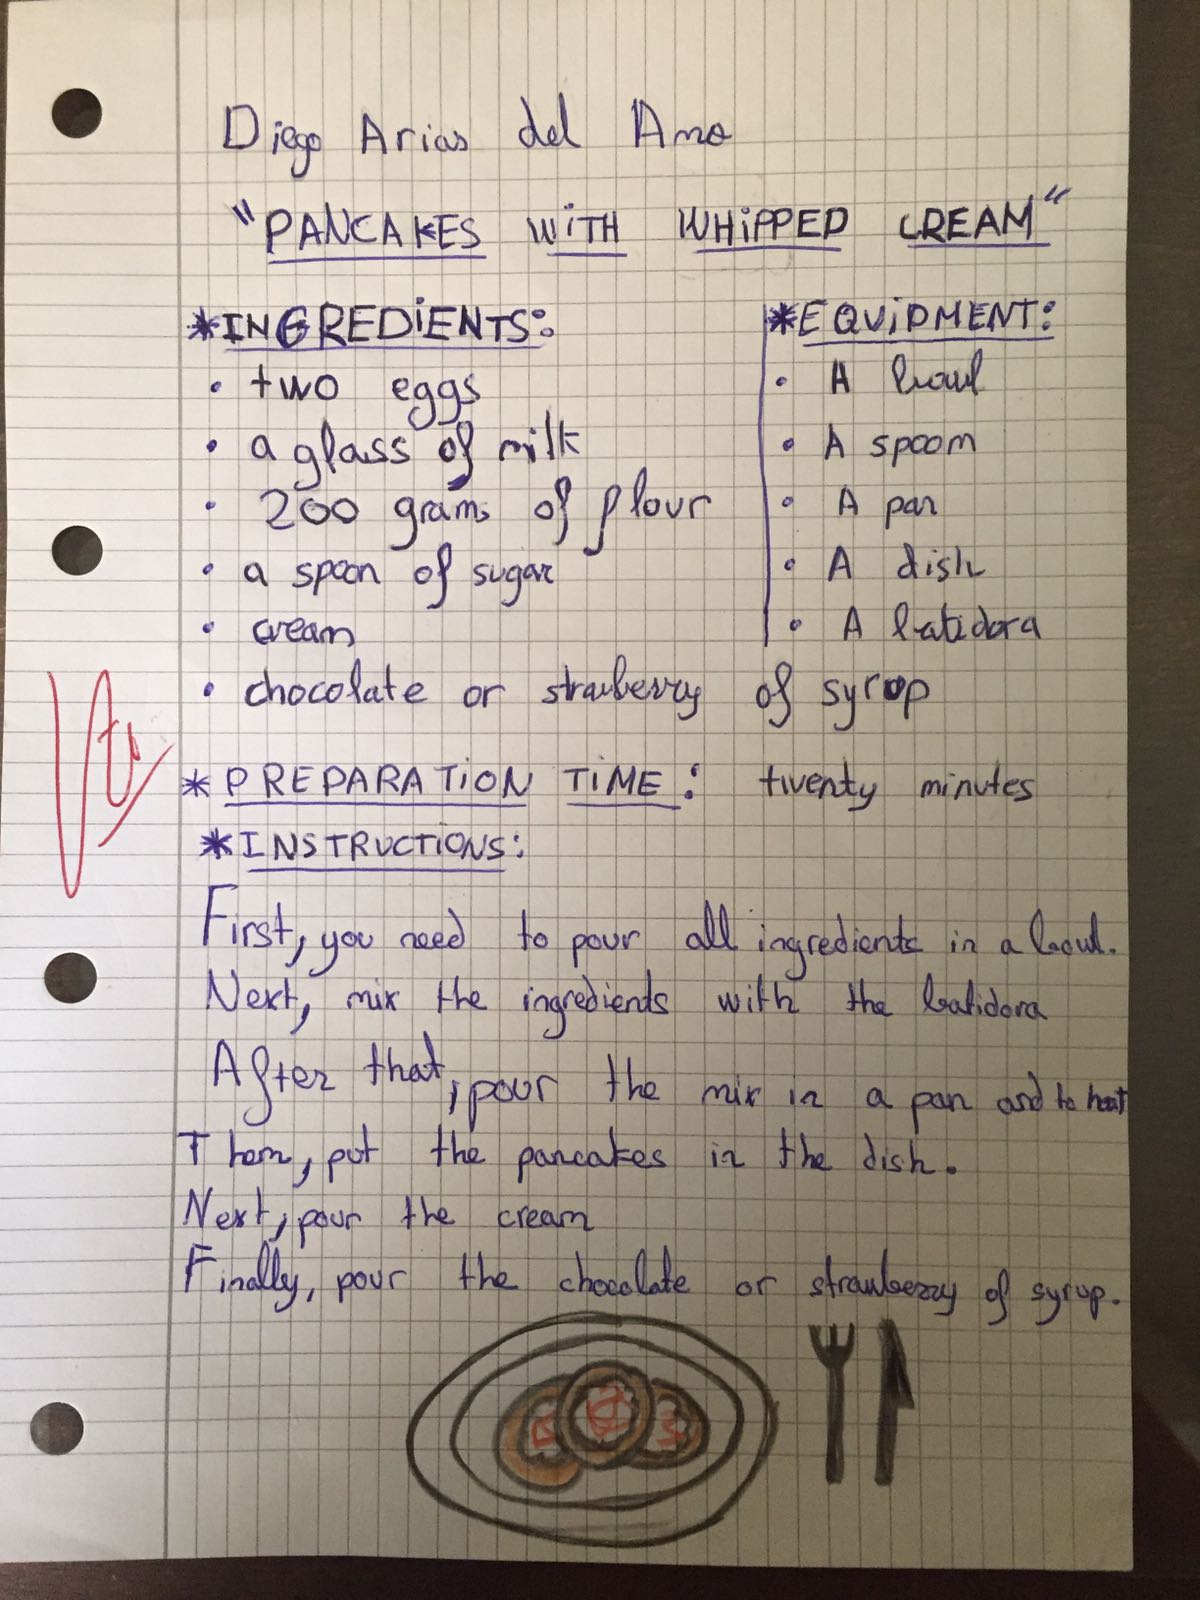 Diego Arias del Amo
"PANCAKES WiTH WHiPPED CREAM"
*INGREDiENTS:
• two eggs
• a glass of milk
• 200 grams of flour
• a spoon of sugar
• cream
• chocolate or strawberry of syrop
*EQUiPMENT:
• A bowl
• A spoom
• A pan
• A dish
• A batidora
* PREPARATiON TiME: twenty minutes
*INSTRUCTiONS:
First, you need to pour all ingredients in a bowl.
Next, mix the ingredients with the batidora
After that, pour the mix in a pan and to heat
Them, put the pancakes in the dish.
Next, pour the cream
Finally, pour the chocolate or strawberry of syrup.